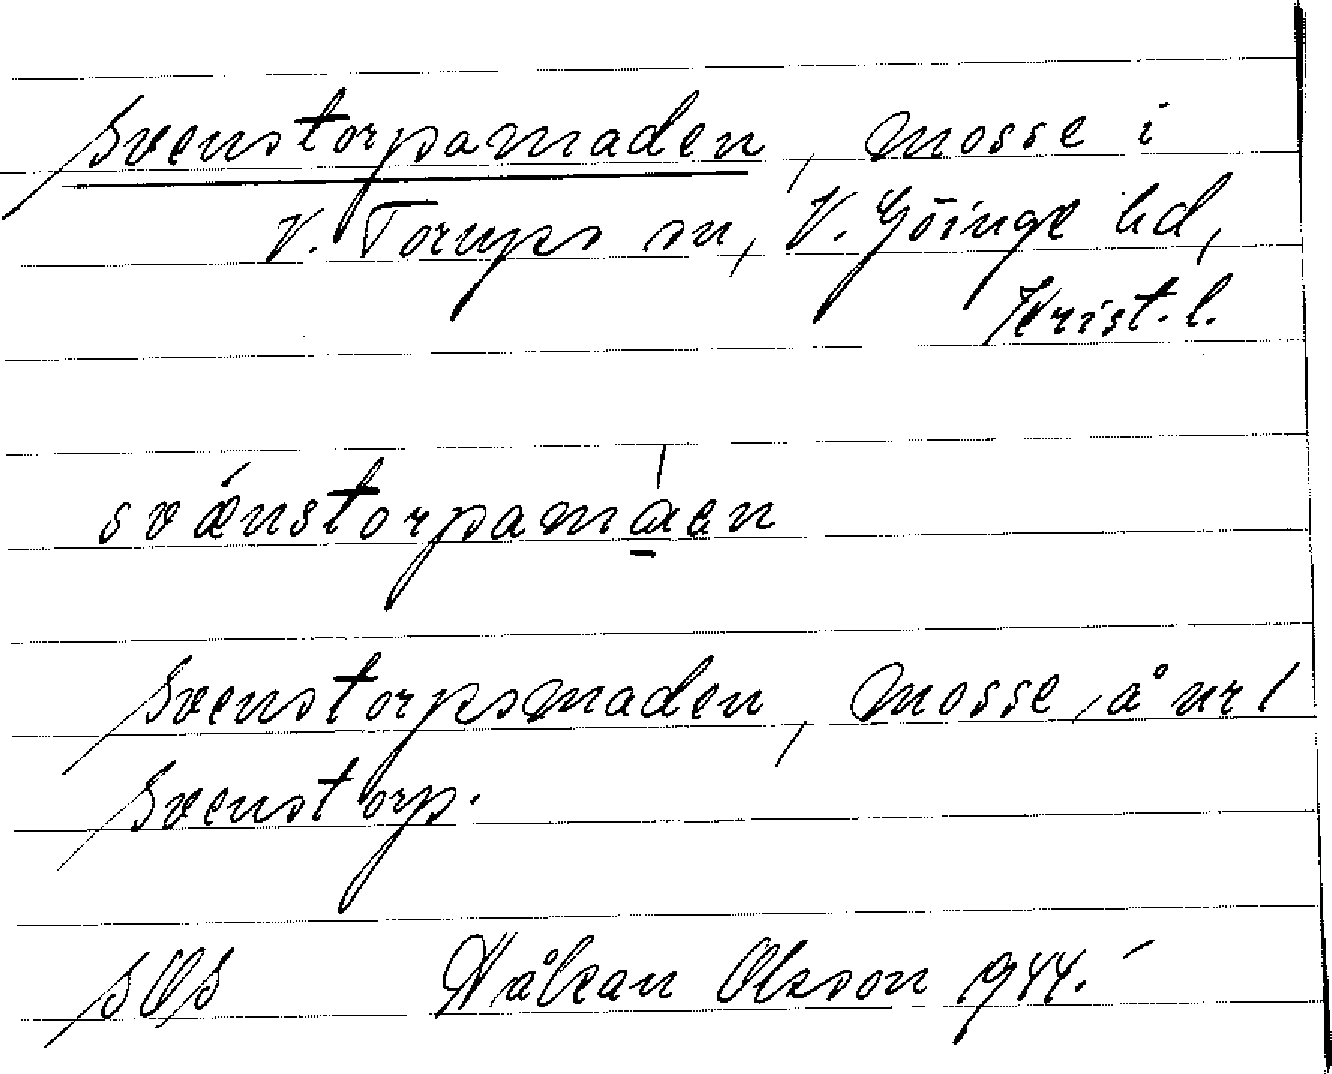 Svenstorpamaden, mosse i
V. Torups sn, V. Göinge hd,
Krist. l.
svǽnstorpamáen
Svenstorpsmaden, mosse, å nr 1
Svenstorp.
SOS Håkan Olsson 1944.